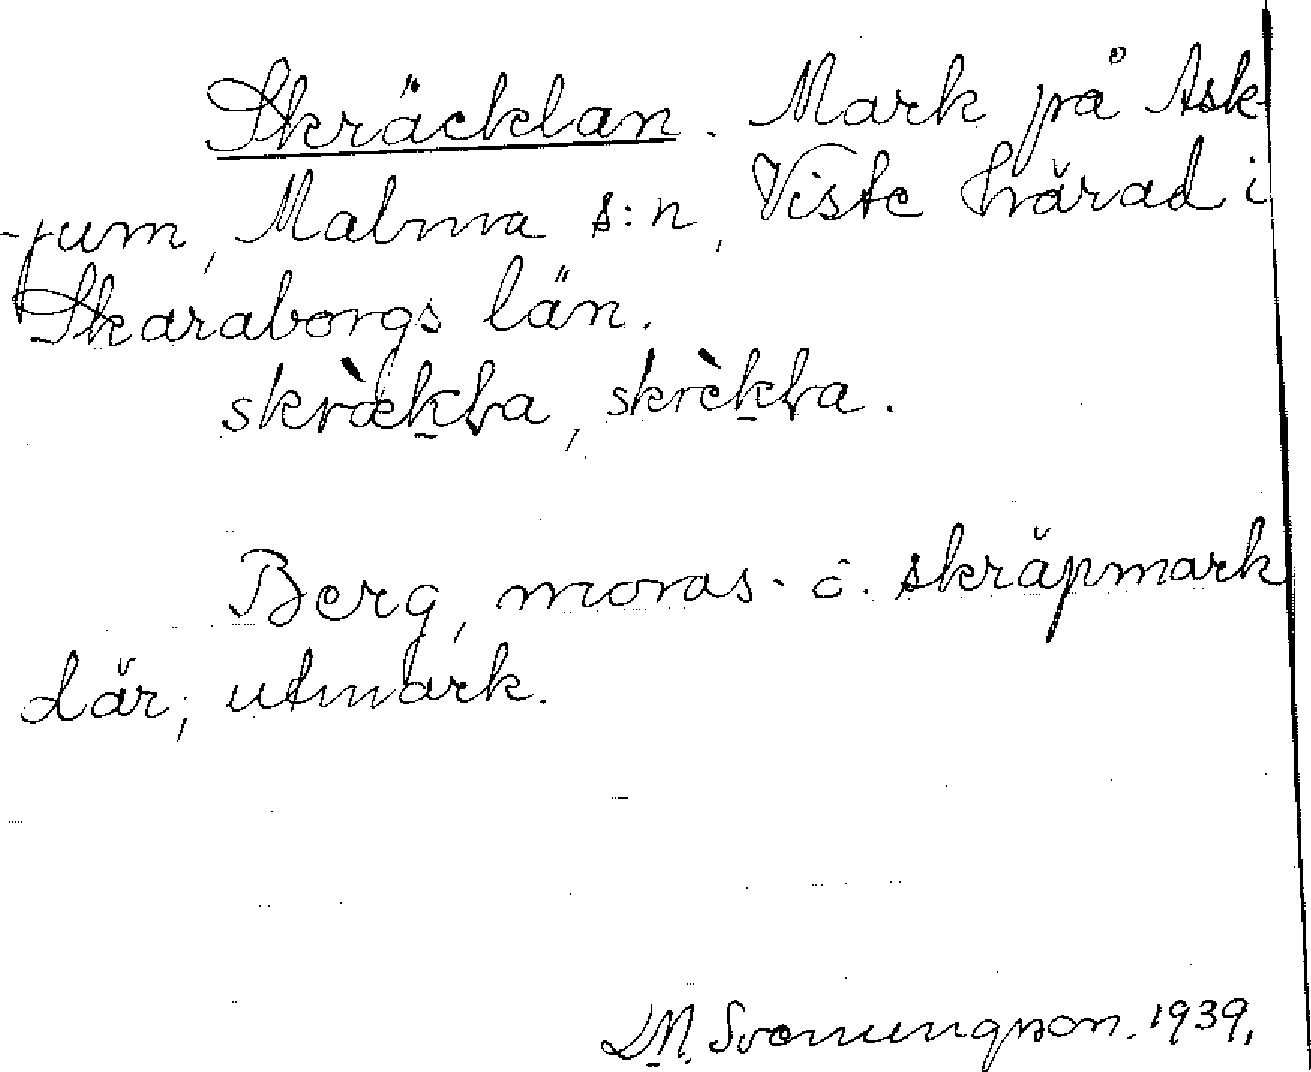 Skräcklan. Mark på Ask-
-jum, Malma s:n, Viste härad i
Skaraborgs län.
skræ̀kɫa, skrèkɫa.
Berg, moras- o. skräpmark
där; utmark.
D.N. Svenungsson. 1939.